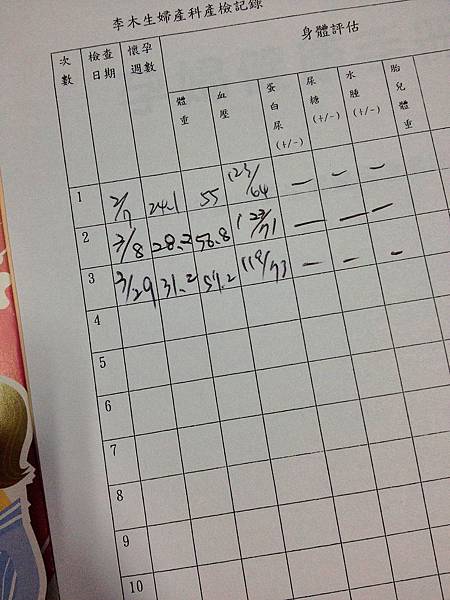 李木生婦產科產檢記錄
身體評估
次數 檢查日期 懷孕週數 體重 血壓 蛋白尿(+/-) 尿糖(+/-) 水腫(+/-) 胎兒體重
1 2/7 24.1 55 123/64 — — —
2 3/8 28.2 56.8 123/71 — — —
3 3/29 31.2 57.2 119/73 — — —
4
5
6
7
8
9
10